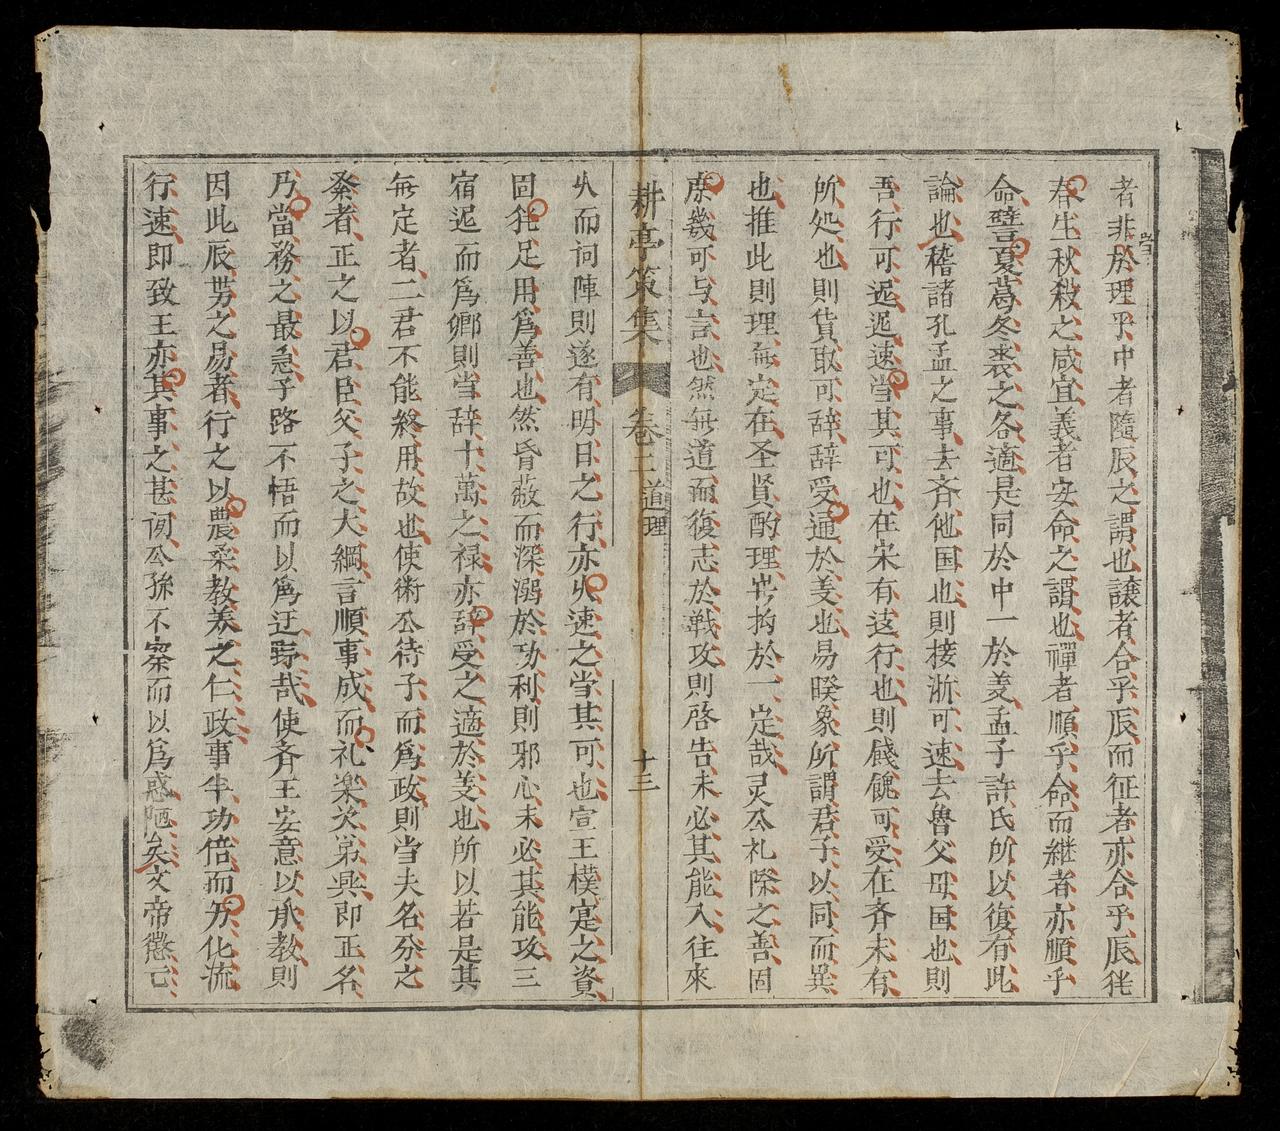 者非於理乎中者隨辰之謂也譲者合乎辰而征者亦合乎辰徃
春生秋殺之咸宜義者安命之謂也禪者順乎命而継者亦順乎
命譬夏葛冬裘之各適是同於中一於义孟子許氏所以復有此
論也稽諸孔孟之事去斉他国也則接淅可速去魯父母国也則
吾行可迟迟速当其可也在宋有𨒒行也則餞餽可受在斉未有
所処也則貨取可辞辞受適於义也易睽象所謂君子以同而異
也推此則理無定在圣賢酌理岂拘於一定哉灵公礼際之善固
庶幾可与言也然無道而復志於戦攻則啓告未必其能入往來
耕亭策集 卷二 道理 十三
久而问陣則遂有明日之行亦久速之当其可也宣王樸寔之資
固徃足用為善也然昏蔽而深溺於功利則邪心未必其能攻三
宿迟而為卿則当辞十萬之禄亦辞受之適於义也所以若是其
無定者二君不能終用故也使衛公待子而為政則当夫名分之
紊者正之以君臣父子之大綱言順事成而礼楽次第興即正名
乃當務之最急子路不悟而以為迂野哉使斉王安意以承教則
因此辰势之易者行之以農桒教养之仁政事半功倍而万化流
行速即致王亦其事之甚闲公孫不察而以為惑陋矣文帝懲亡